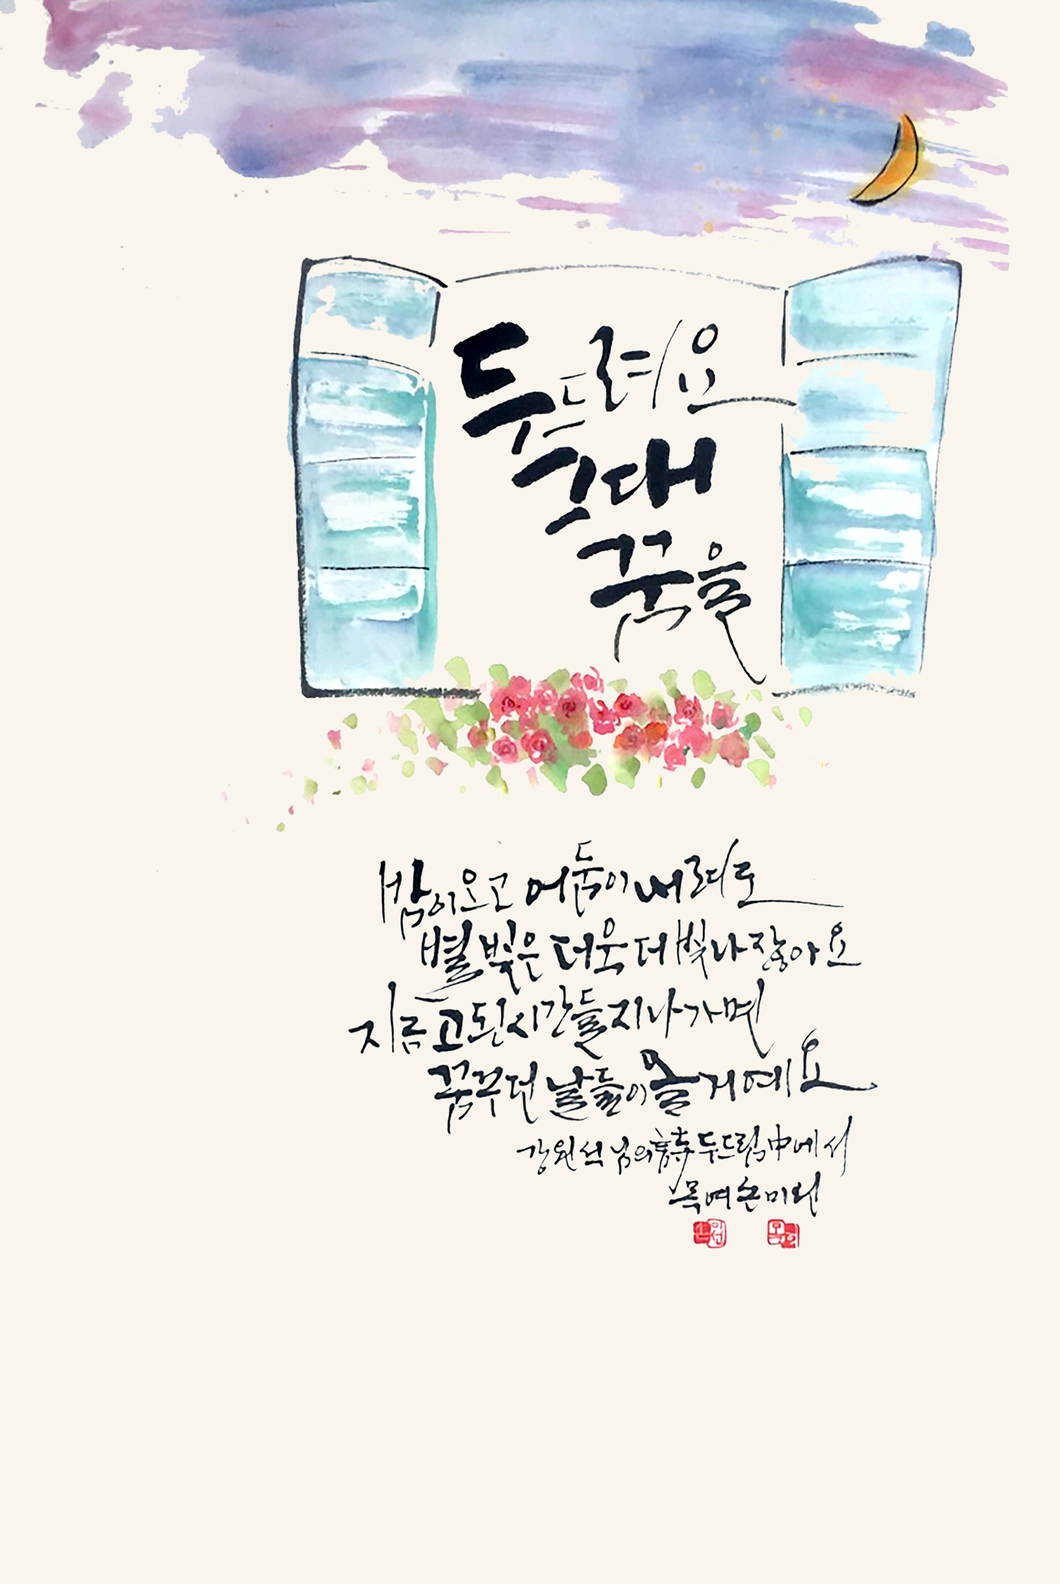 두드려요
그대
꿈을
밤이 오고 어둠이 내려도
별빛은 더욱 더 빛나잖아요
지금 고된 시간들 지나가면
꿈꾸던 날들이 올 거예요
강원석 님의 詩 두드림 中에서
목여 손미원